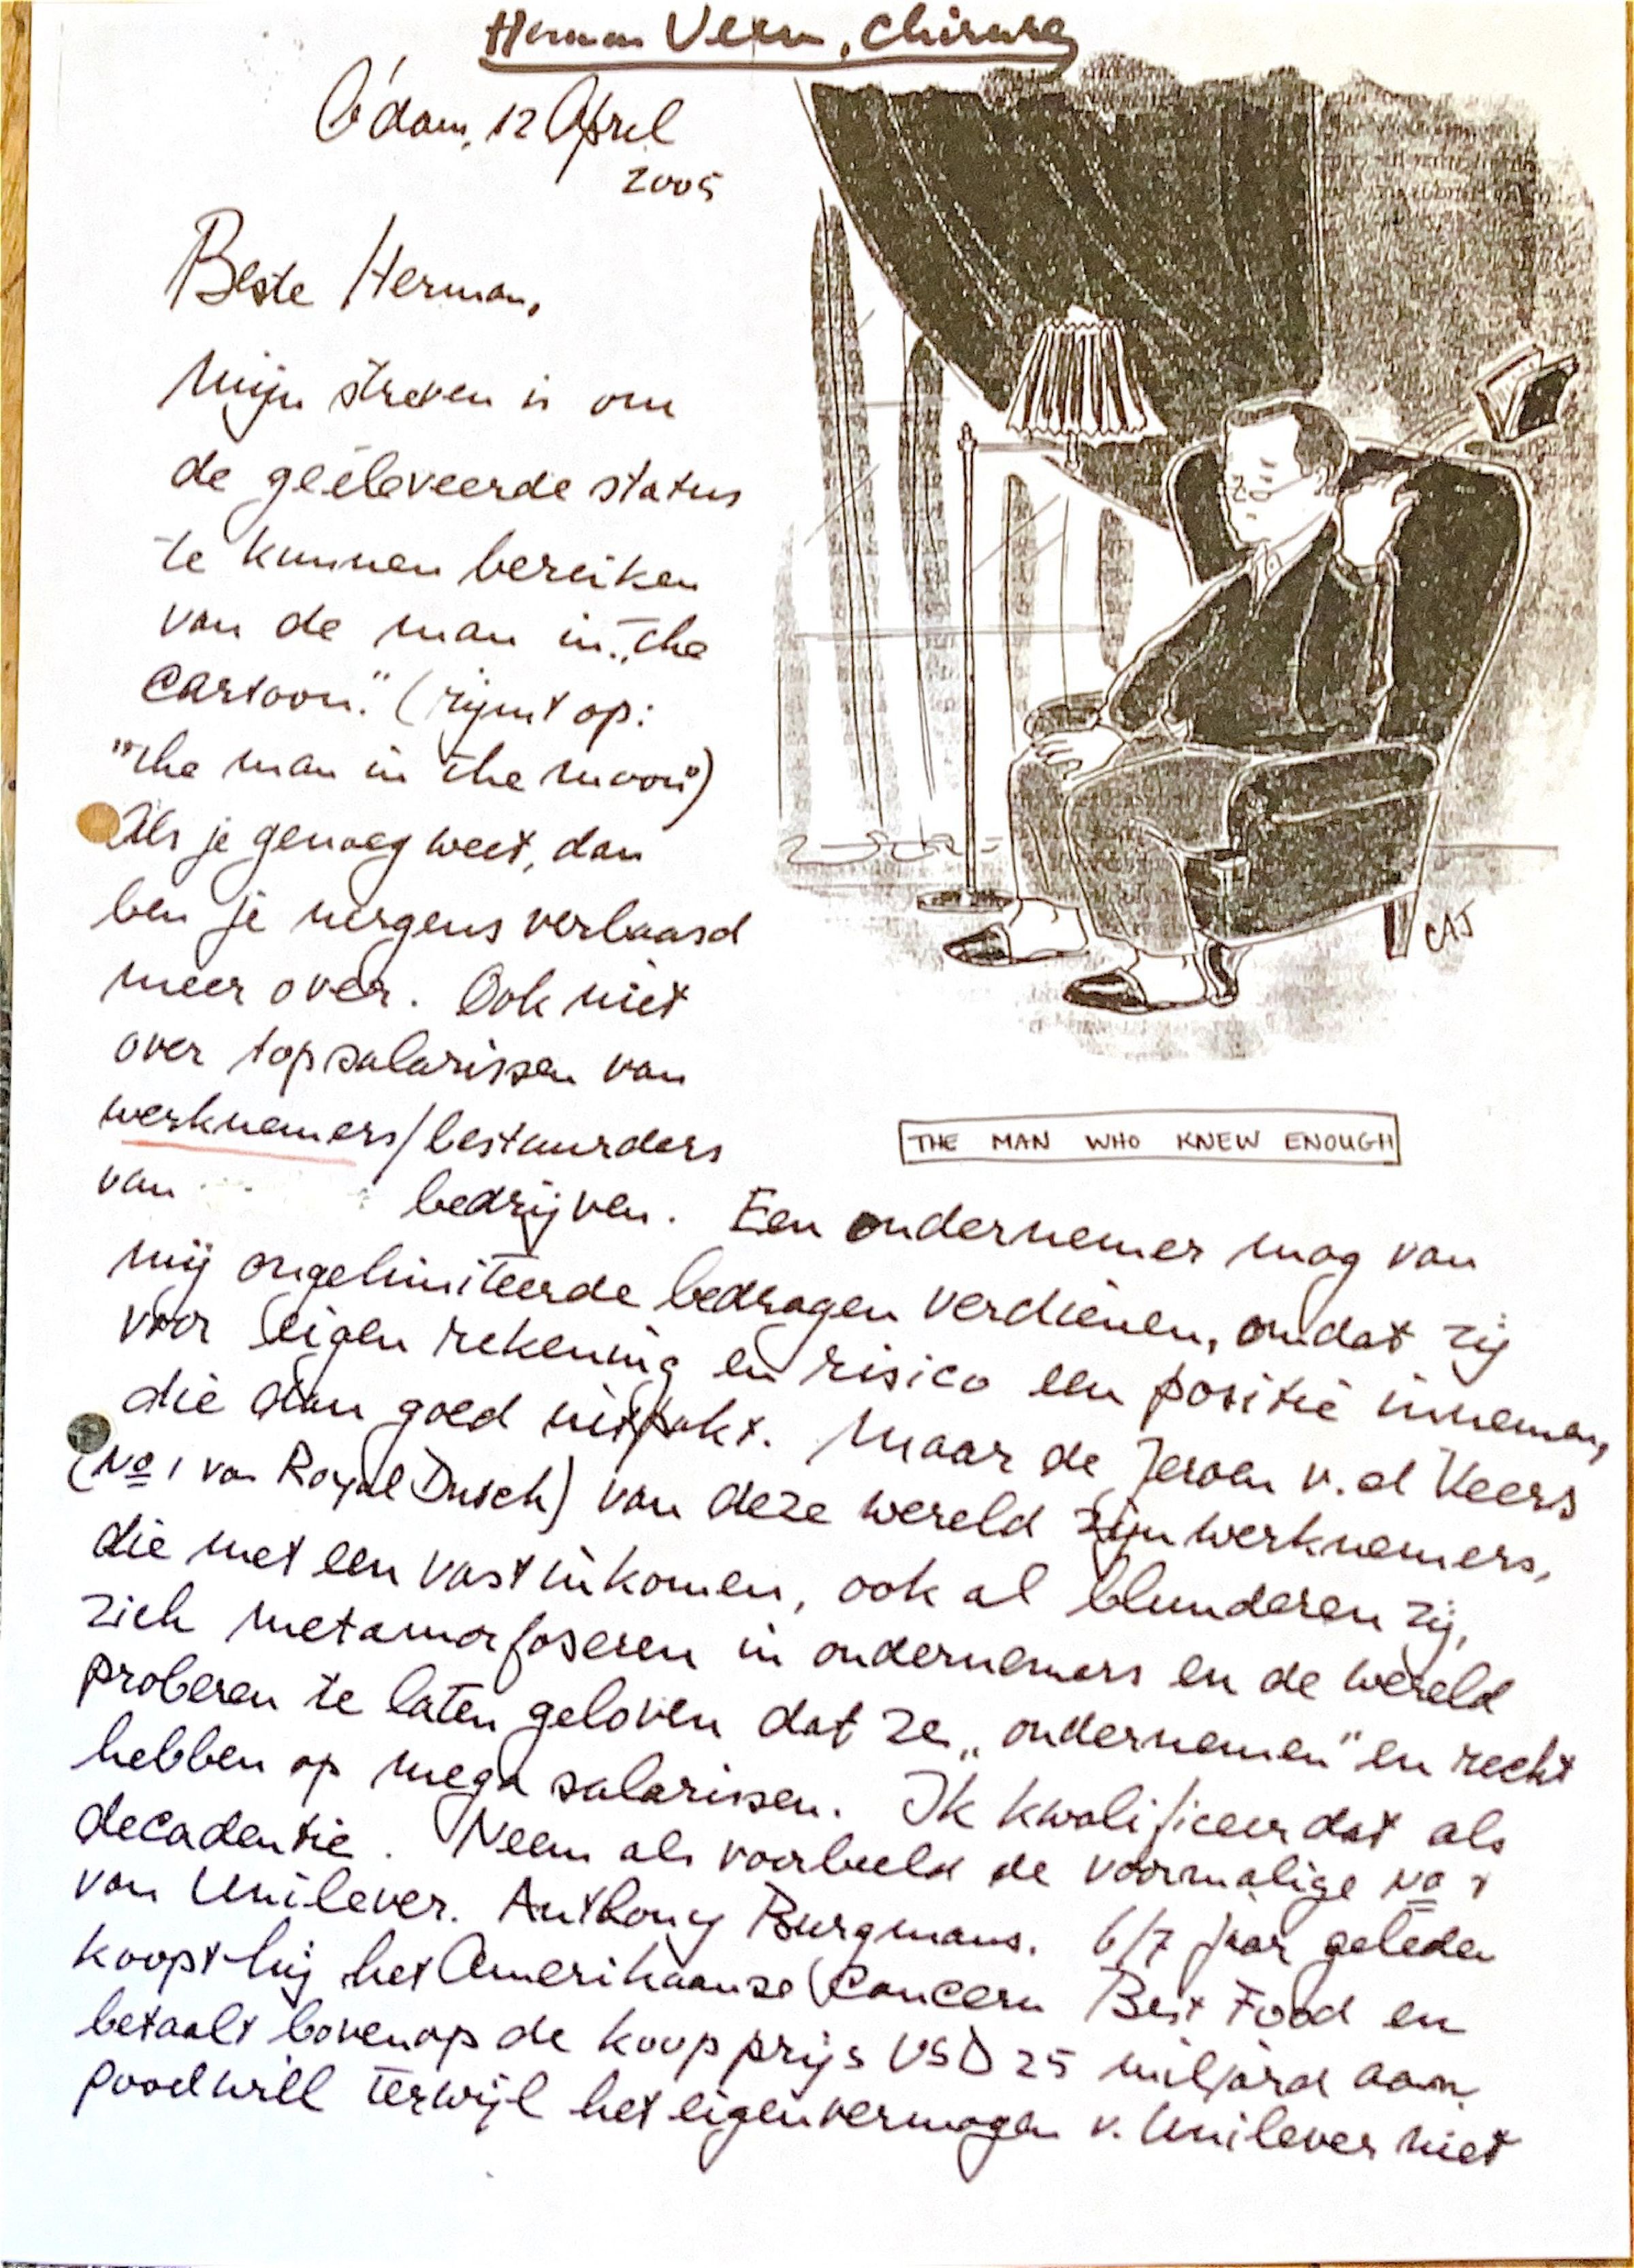 Herman Veen, Chirurg
A'dam, 12 April
2005
Beste Herman,
Mijn streven is om
de geëleveerde status
te kunnen bereiken
van de man in „the
Cartoon." (rijmt op:
"the man in the moon")
Als je genoeg weet, dan
ben je nergens verbaasd
meer over. Ook niet
over topsalarissen van
werknemers/bestuurders
van bedrijven. Een ondernemer mag van
mij ongelimiteerde bedragen verdienen, omdat zij
voor eigen rekening en risico een positie innemen,
die dan goed uitpakt. Maar de Jeroen v.d Veers
(No 1 van Royal Dutch) van deze wereld zijn werknemers,
die met een vast inkomen, ook al blunderen zij,
zich metamorfoseren in ondernemers en de wereld
proberen te laten geloven dat ze „ondernemen" en recht
hebben op mega salarissen. Ik kwalificeer dat als
decadentie. Neem als voorbeeld de voormalige No 1
van Unilever. Anthony Burgmans. 6/7 jaar geleden
koopt hij het Amerikaanse Concern Best Food en
betaalt bovenop de koopprijs USD 25 miljard aan
goodwill terwijl het eigenvermogen v. Unilever niet
CAJ
THE MAN WHO KNEW ENOUGH